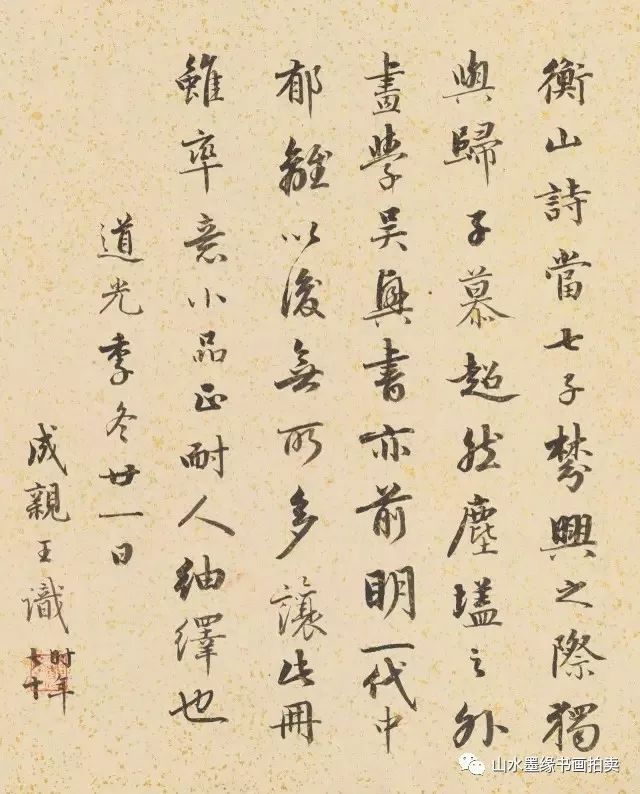 衡山詩當七子棼興之際獨
與歸子慕超然塵壒之外
畫學吴興書亦前明一代中
郁離以後無所多讓此冊
雖率意小品正耐人紬繹也
道光季冬廿一日
成親王識
时年
七十
山水墨缘书画拍卖